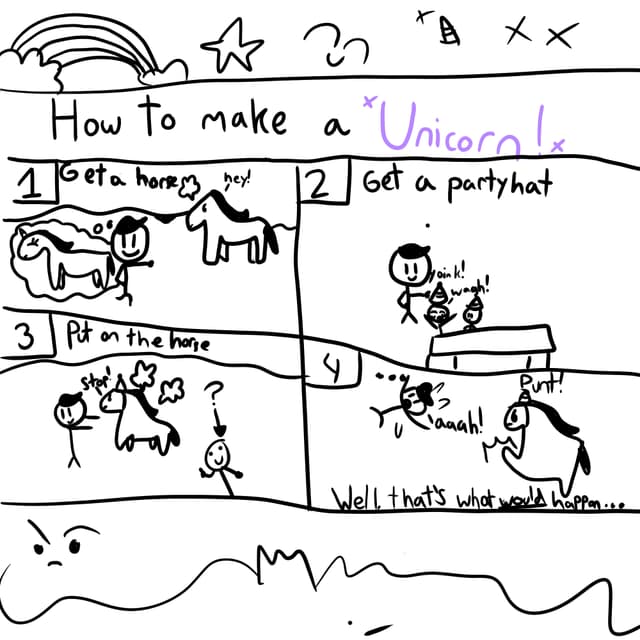 How to make a Unicorn!
1 Get a horse
hey!
2 Get a party hat
oink!
waah!
3 Put on the horse
stop!
?
4 ...
aaah!
Punt!
Well, that's what would happen...